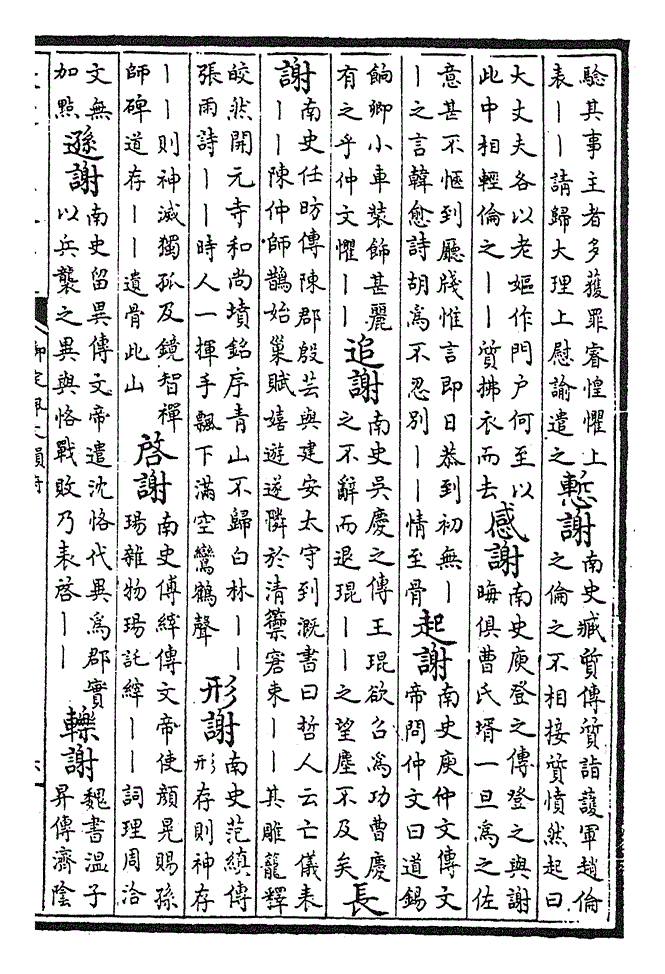 驗其事主者多獲罪睿惶懼上
表――請歸大理上慰諭遣之
慙謝
南史臧質傳質詣護軍趙倫
之倫之不相接質憤然起曰
大丈夫各以老嫗作門户何至以
此中相輕倫之――質拂衣而去
感謝
南史庾登之傳登之與謝
晦俱曹氏壻一旦爲之佐
意甚不愜到廳牋惟言即日恭到初無―
―之言韓愈詩胡爲不忍别――情至骨
起謝
南史庾仲文傳文
帝問仲文曰道錫
餉卿小車裝飾甚麗
有之乎仲文懼――
追謝
南史吳慶之傳王琨欲召爲功曹慶
之不辭而退琨――之望塵不及矣
長
謝
南史任昉傳陳郡殷芸與建安太守到溉書曰哲人云亡儀表
――陳仲師鵲始巢賦嬉遊遂憐於清籞窘束――其雕籠釋
皎然開元寺和尚墳銘序青山不歸白林――
張雨詩――時人一揮手飄下滿空鸞鶴聲
形謝
南史范縝傳
形存則神存
――則神滅獨孤及鏡智禪
師碑道存――遺骨此山
啓謝
南史傅縡傳文帝使顔晃賜孫
瑒雜物瑒託縡――詞理周洽
文無
加點
遜謝
南史留異傳文帝遣沈恪代異爲郡實
以兵襲之異與恪戰敗乃表啓――
轢謝
魏書溫子
昇傳濟陰